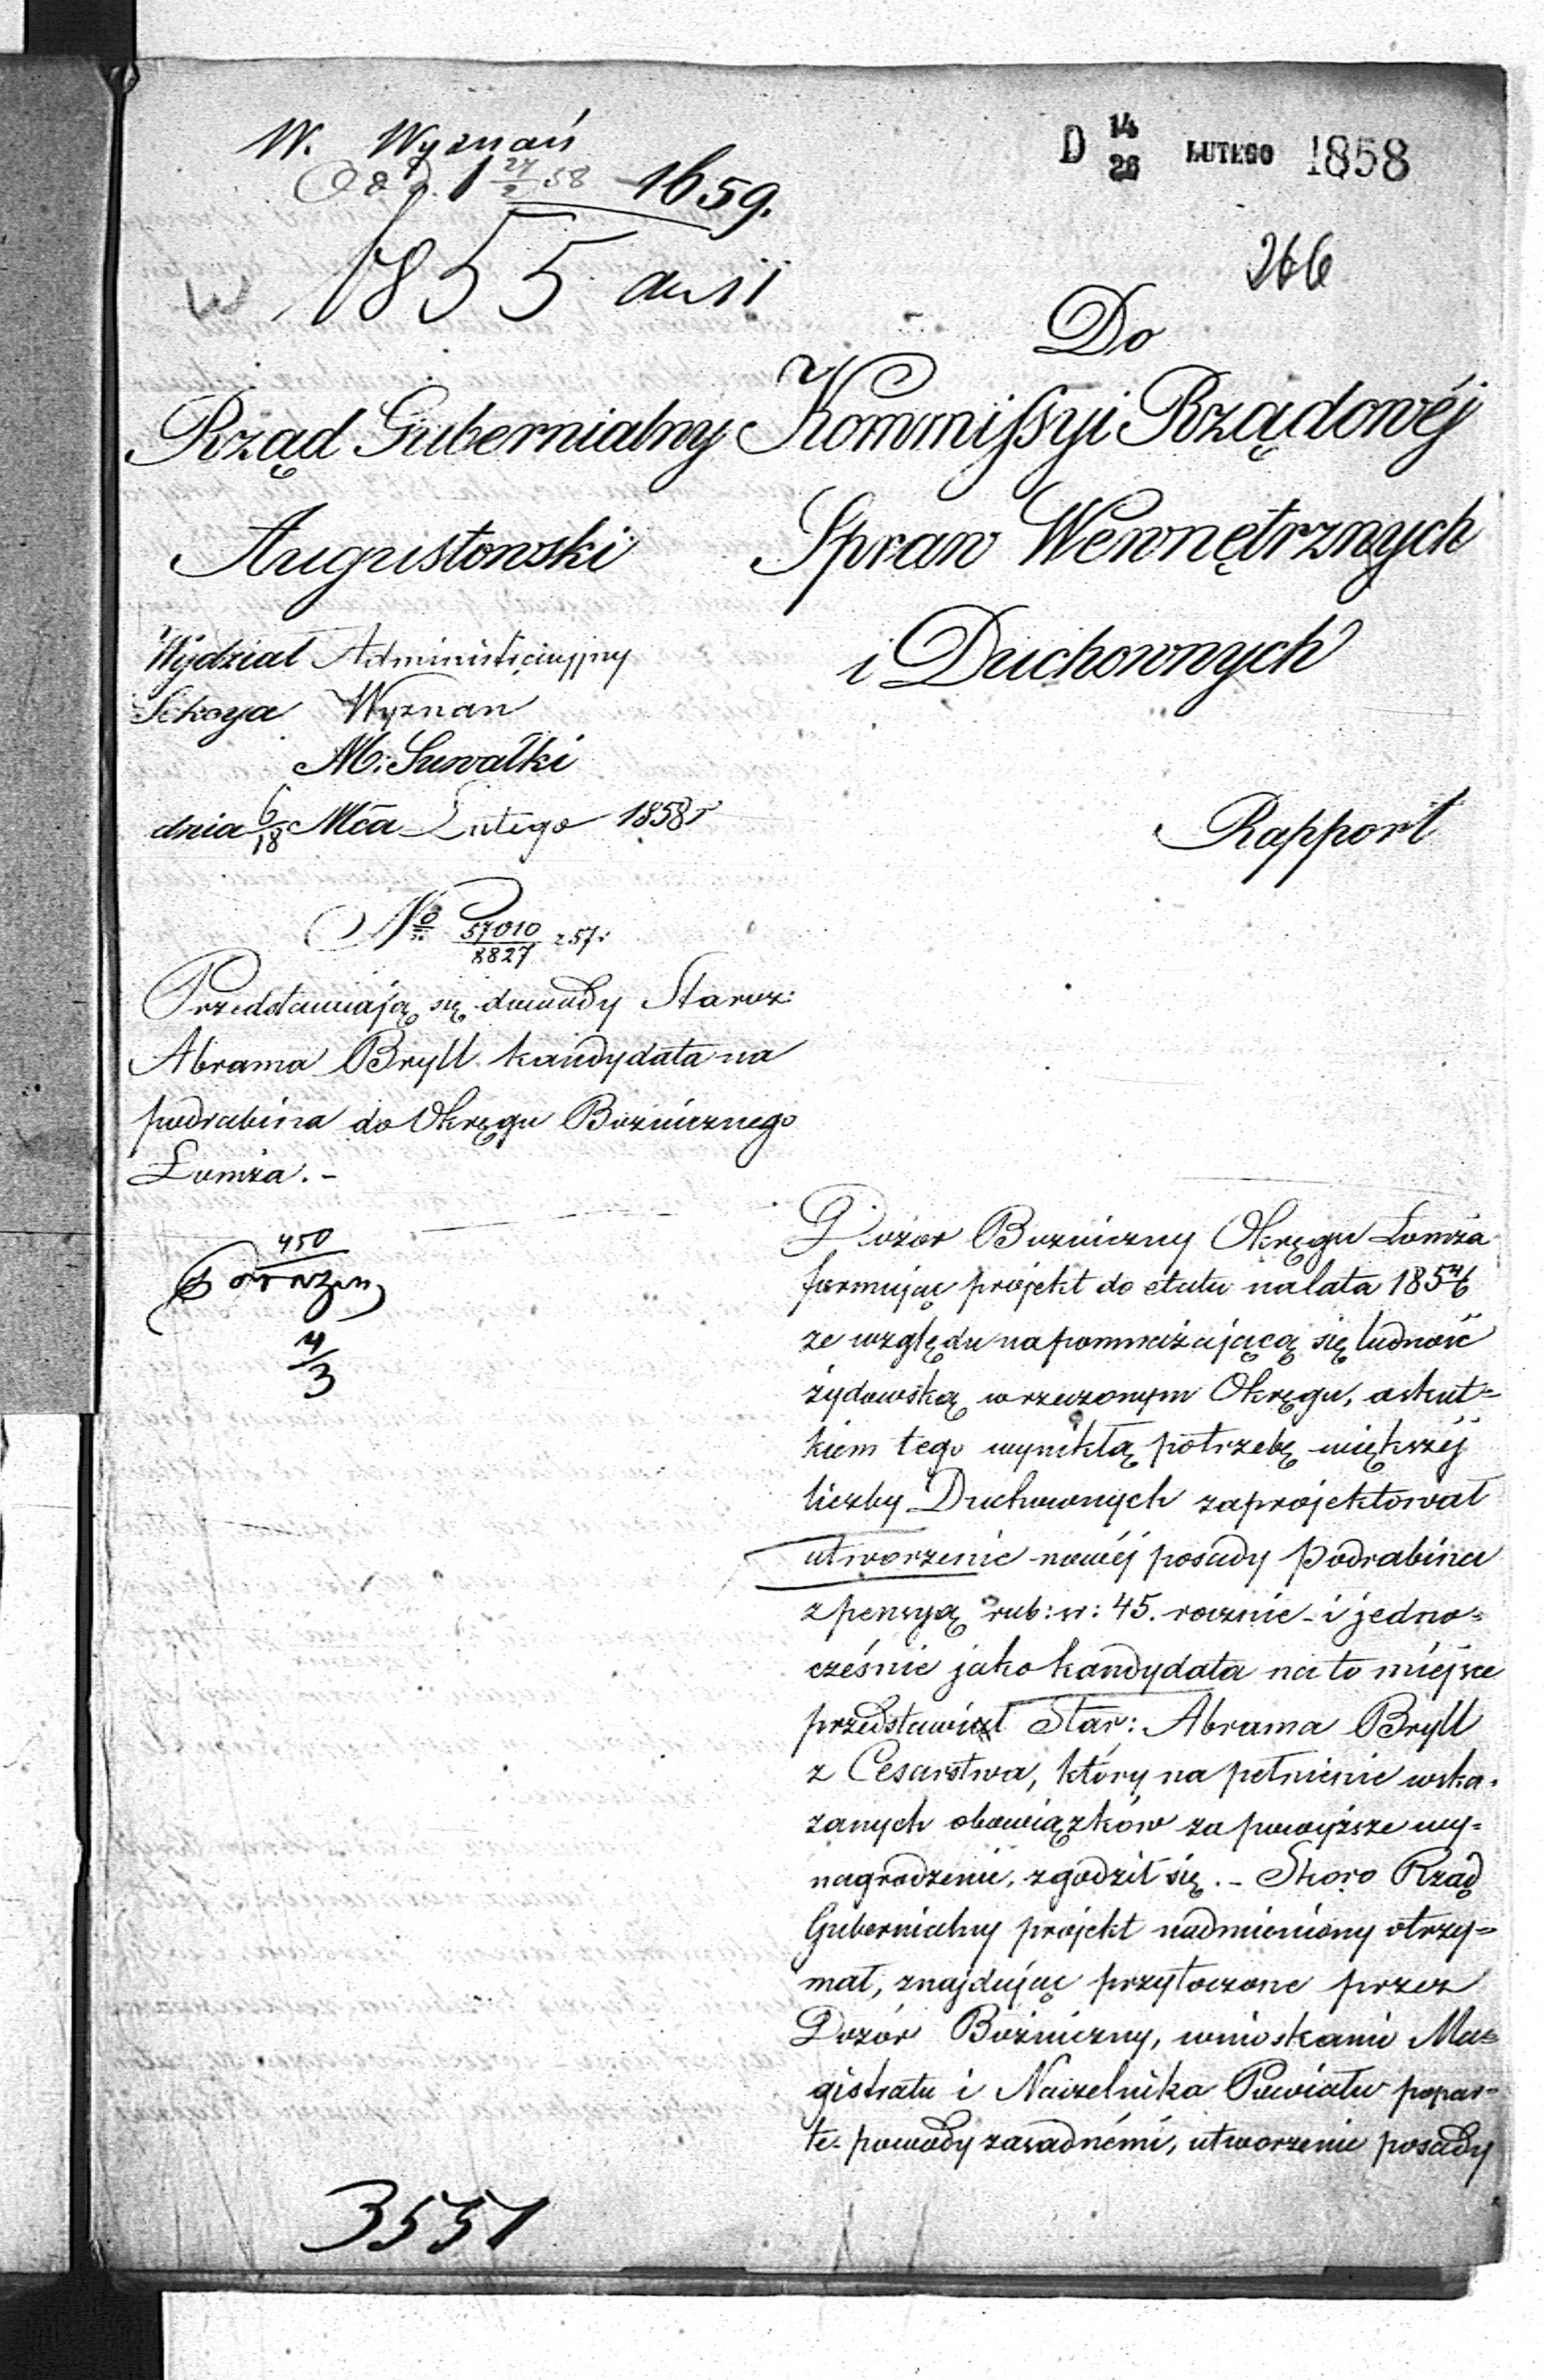 W. Wyznań
Odd. 1 27/2 58 1659.
1855
D 14/26 LUTEGO 1858
266
Do
Kommissyi Rządowéj
Spraw Wewnętrznych
i Duchownych
Rapport
Rząd Gubernialny
Augustowski
Wydział Administracyjny
Sekcya Wyznań
M: Suwałki
dnia 6/18 Mca Lutego 1858 r
No 57010/8827 z 57:
Przedstawiają się dowody Staroz:
Abrama Bryll kandydata na
podrabina do Okręgu Bożniczego
Łomża. -
450
4/3
Dozór Bożniczny Okręgu Łomża
formując projekt do etatu na lata 1854/6
ze względu na pomnażającą się ludność
żydowską w rzeczonym Okręgu, a skut=
kiem tego wynikłą potrzebę większéj
liczby Duchownych zaprojektował
utworzenie nowéj posady Podrabina
z pensyą rub: sr: 45. rocznie - i jedno=
cześnie jako kandydata na to miejsce
przedstawił Star: Abrama Bryll
z Cesarstwa, który na pełnienie wska=
zanych obowiązków za powyższe wy=
nagrodzenie, zgodził się. - Skoro Rząd
Gubernialny projekt nadmieniony otrzy=
mał, znajdując przytoczone przez
Dozór Bożniczny, wnioskami Ma=
gistratu i Naczelnika Powiatu popar=
te - powody zasadnémi, utworzenie posady
3551